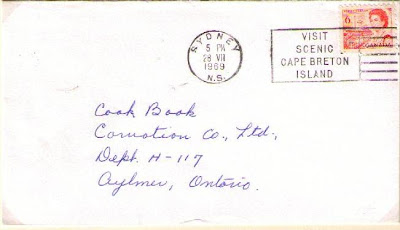 SYDNEY
5 PM
28 VII
1969
N.S.
VISIT
SCENIC
CAPE BRETON
ISLAND
6
CANADA
Cook Book
Carnation Co., Ltd.,
Dept. H-117
Aylmer, Ontario.